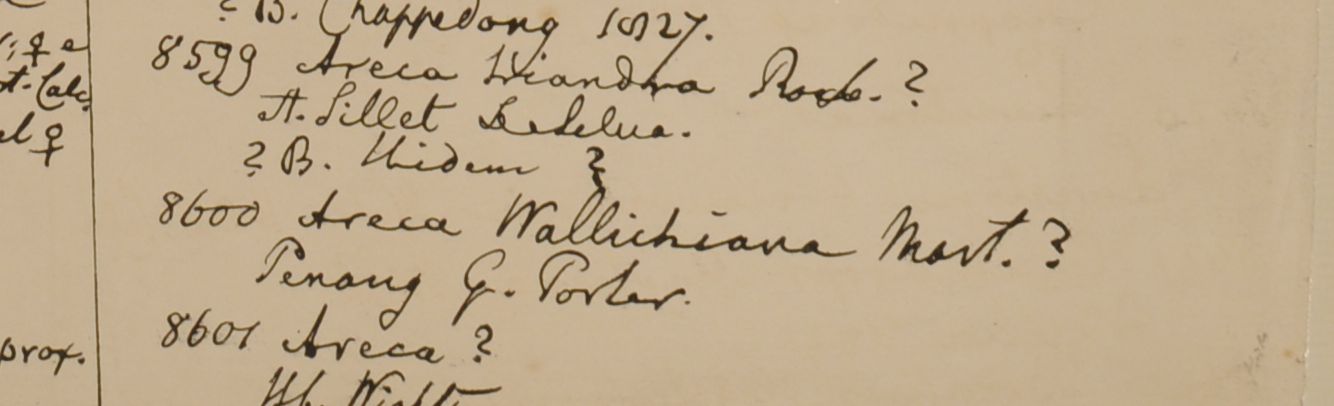 ? B. Chappedong 1827.
8599 Areca triandra Roxb. ?
A. Sillet
? B. Ibidem ?
8600 Areca Wallichiana Mart. ?
Penang G. Porter.
8601 Areca ?
Hb. Wight
; ♀ e
t. Calc.
el ♀
prox.